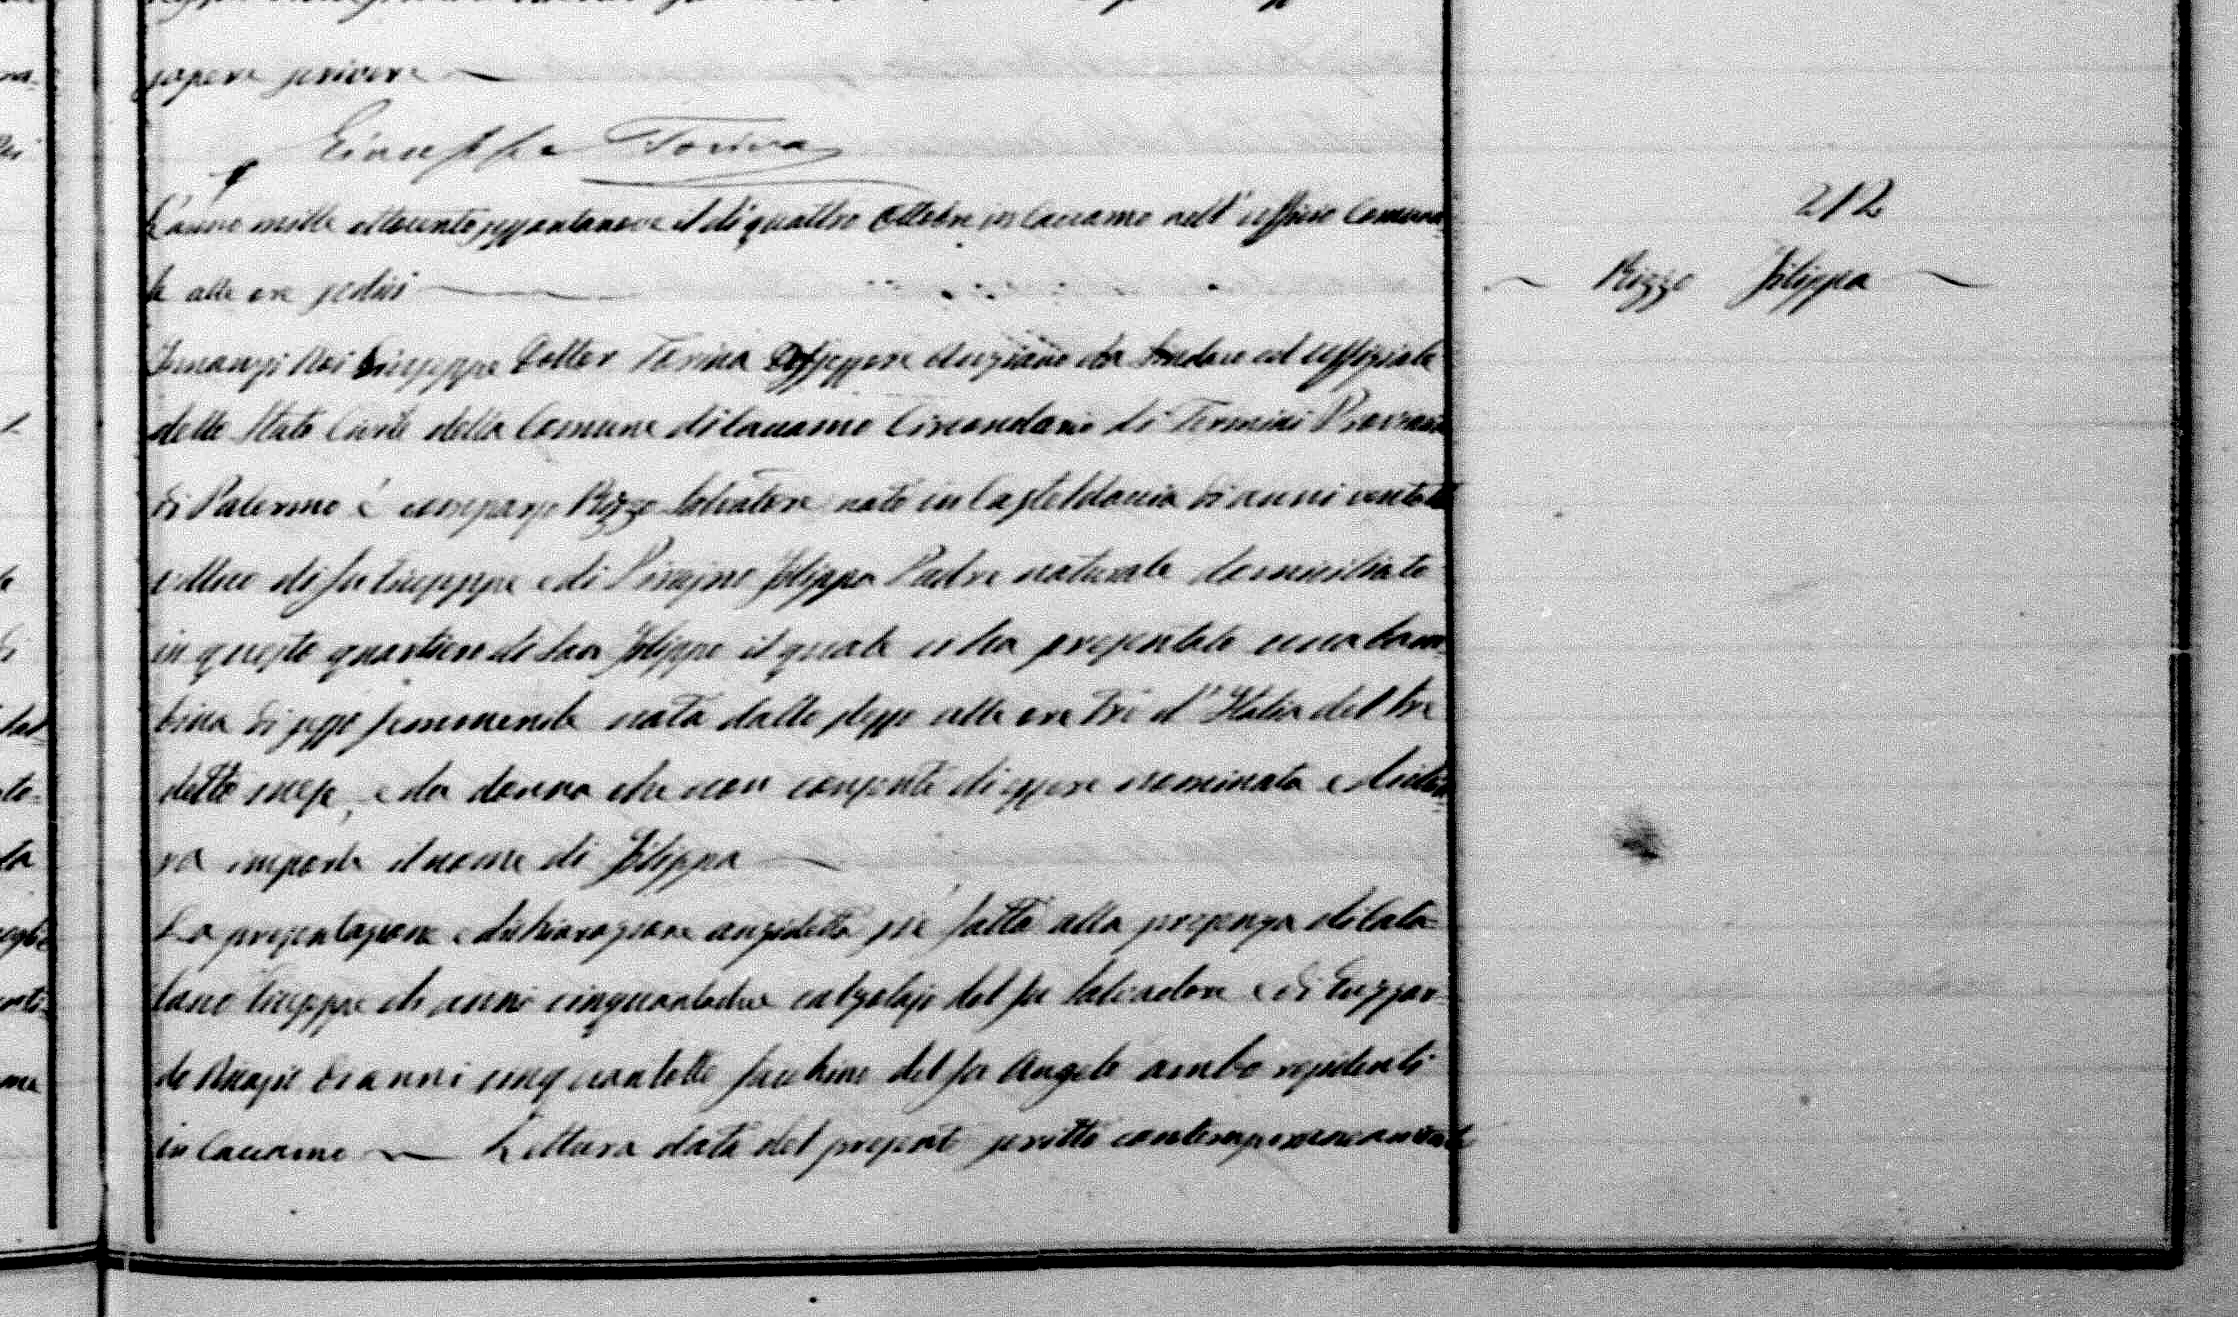 sapere scrivere
Giuseppe Torina
212
Rizzo Filippa
L'anno mille ottocento sessantanove il dì quattro Ottobre in Caccamo nell'uffizio Comuna-
le alle ore sedici
Innanzi Noi Giuseppe Dottor Torina Assessore Anziano da Sindaco ed uffiziale
dello Stato Civile della Comune di Caccamo Circondario di Termini Provincia
di Palermo è comparso Rizzo Salvatore nato in Casteldaccia di anni
villico di fu Giuseppe e di Filippa Padre naturale domiciliato
in questo quartiere di San Filippo il quale ci ha presentato una bam-
bina di sesso femmenile nata dallo stesso alle ore tre d'Italia del tre
detto mese, e da donna che non consente di essere nominata e
ra imporle il nome di Filippa
La presentazione e dichiarazione anzidetta si è fatta alla presenza di Cata-
lano Giuseppe di anni cinquantadue calzolajo del fu Salvadore e di
do Biagio di anni facchino del fu Angelo ambo residenti
in Caccamo Lettura data del presente scritto contemporaneamente